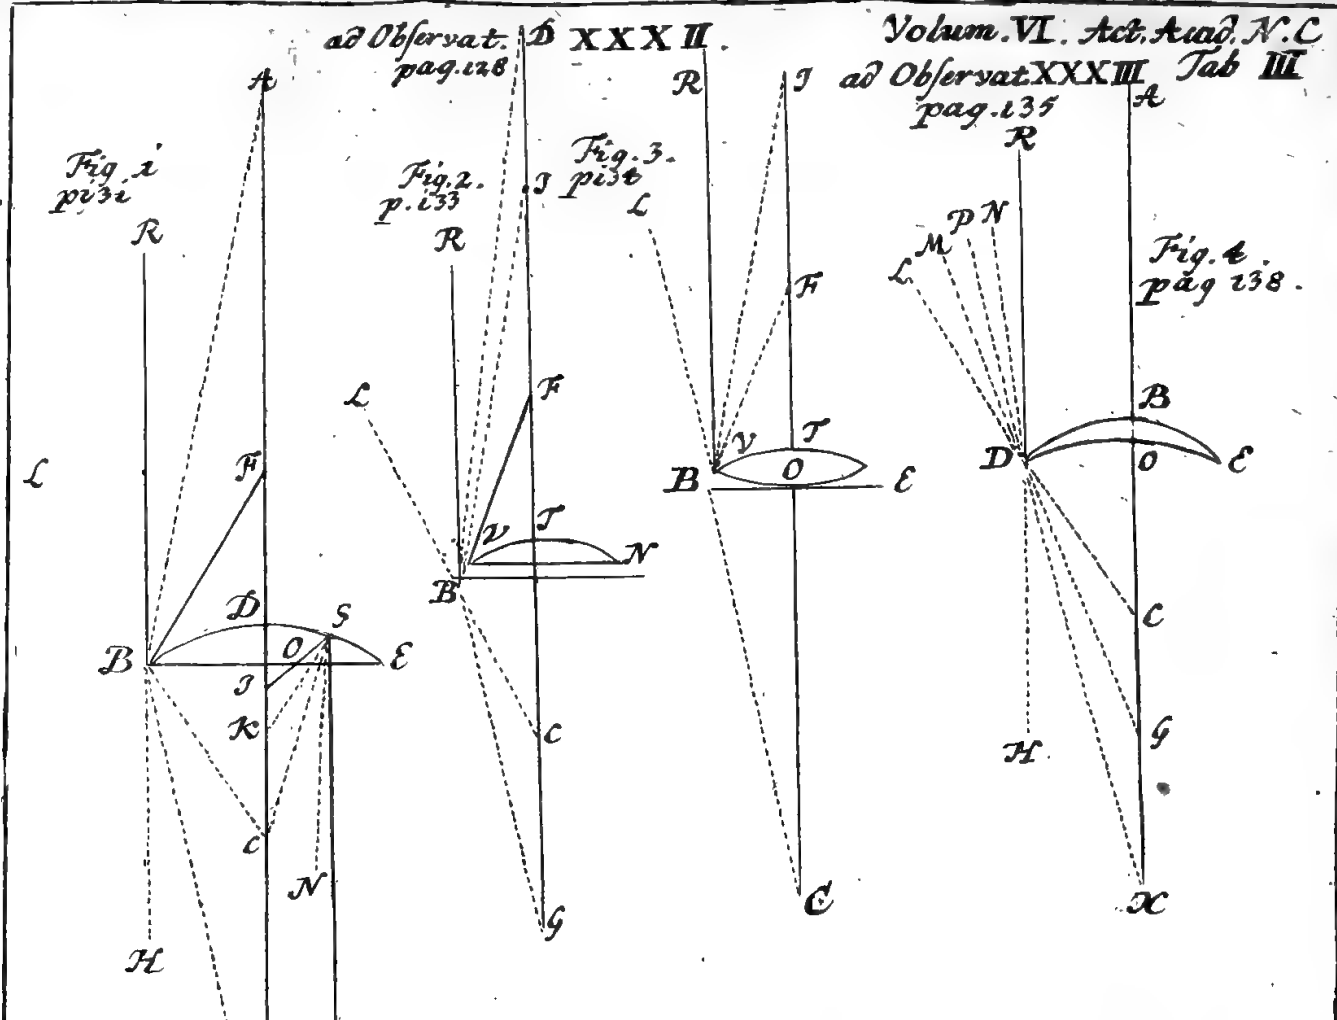 ad Observat. XXXII.
pag.128
Volum.VI. Act. Acad. N.C
ad Observat XXXIII Tab III
pag.135
Fig 1
p131
R
A
F
L
D
G
B
O
E
I
K
C
N
H
Fig.2.
p.133
D
I
R
F
L
V
T
N
B
C
G
Fig.3.
p134
R
I
L
F
V
T
O
B
E
C
Fig.4.
pag 138.
A
R
N
P
M
L
B
D
O
E
C
G
H
K